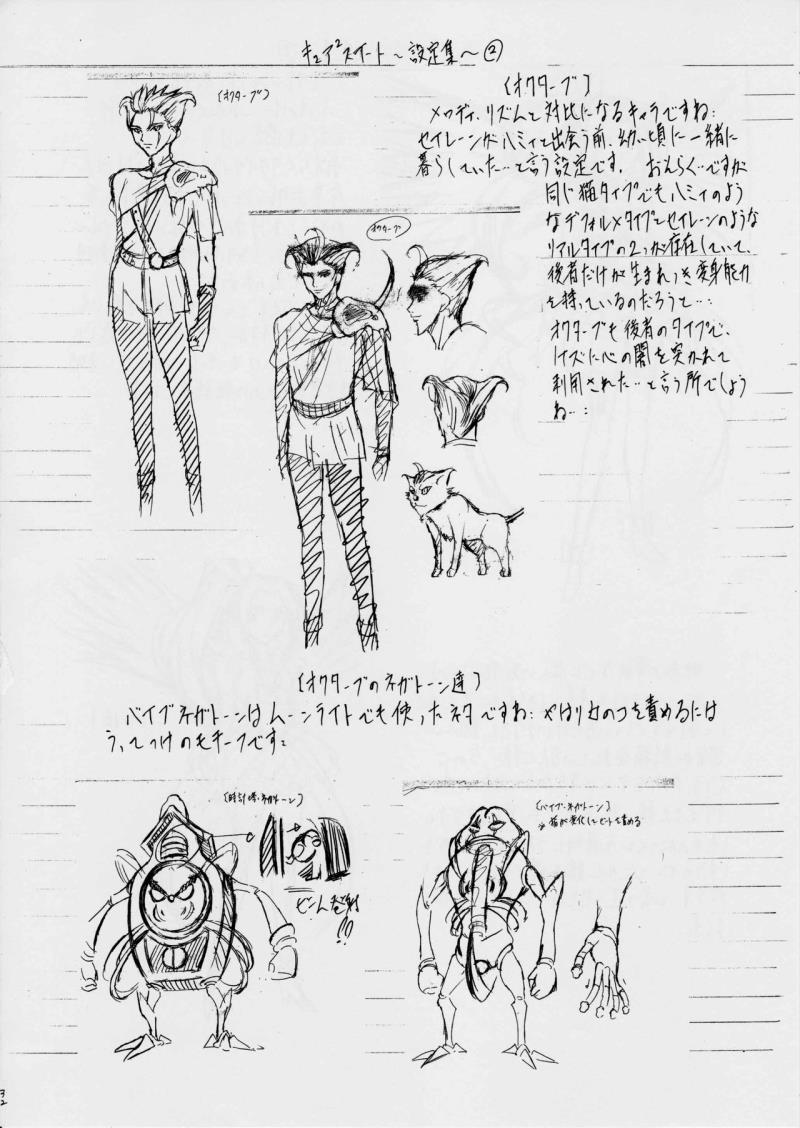 キュア²スイート～設定集～②
〔オクターブ〕
〔オクターブ〕
メロディ、リズムと対比になるキャラですね:
セイレーンがハミィと出会う前、幼い頃に一緒に
暮らしていた…と言う設定です. おそらく…ですが
同じ猫タイプでもハミィのよう
なデフォルメタイプとセイレーンのような
リアルタイプの2つが存在していて、
後者だけが生まれつき変身能力
を持っているのだろうと…:
オクターブも後者のタイプで、
ノイズに心の闇を突かれて
利用された…と言う所でしょう
ね…:
オクターブ
〔オクターブのネガトーン達〕
バイブネガトーンはムーンライトでも使ったネタですね: やはり女のコを責めるには
うってつけのモチーフです:
〔時計塔・ネガトーン〕
〔バイブ・ネガトーン〕
発射
!!
32